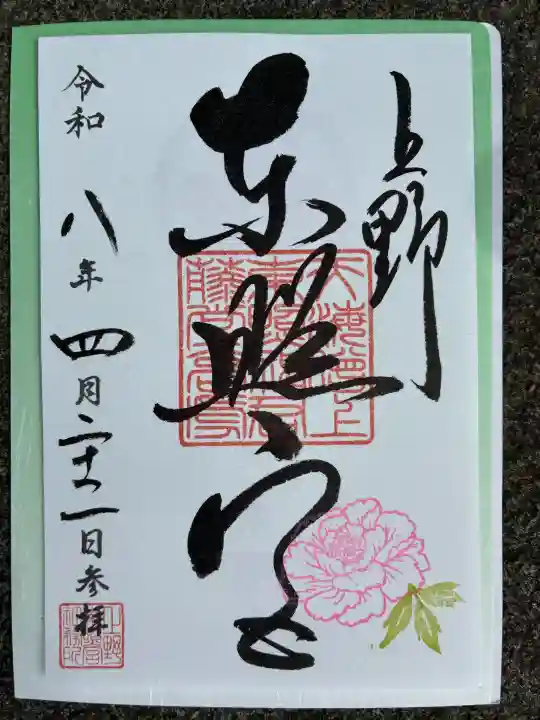 上野
東照宮
令和八年四月二十二日参拝